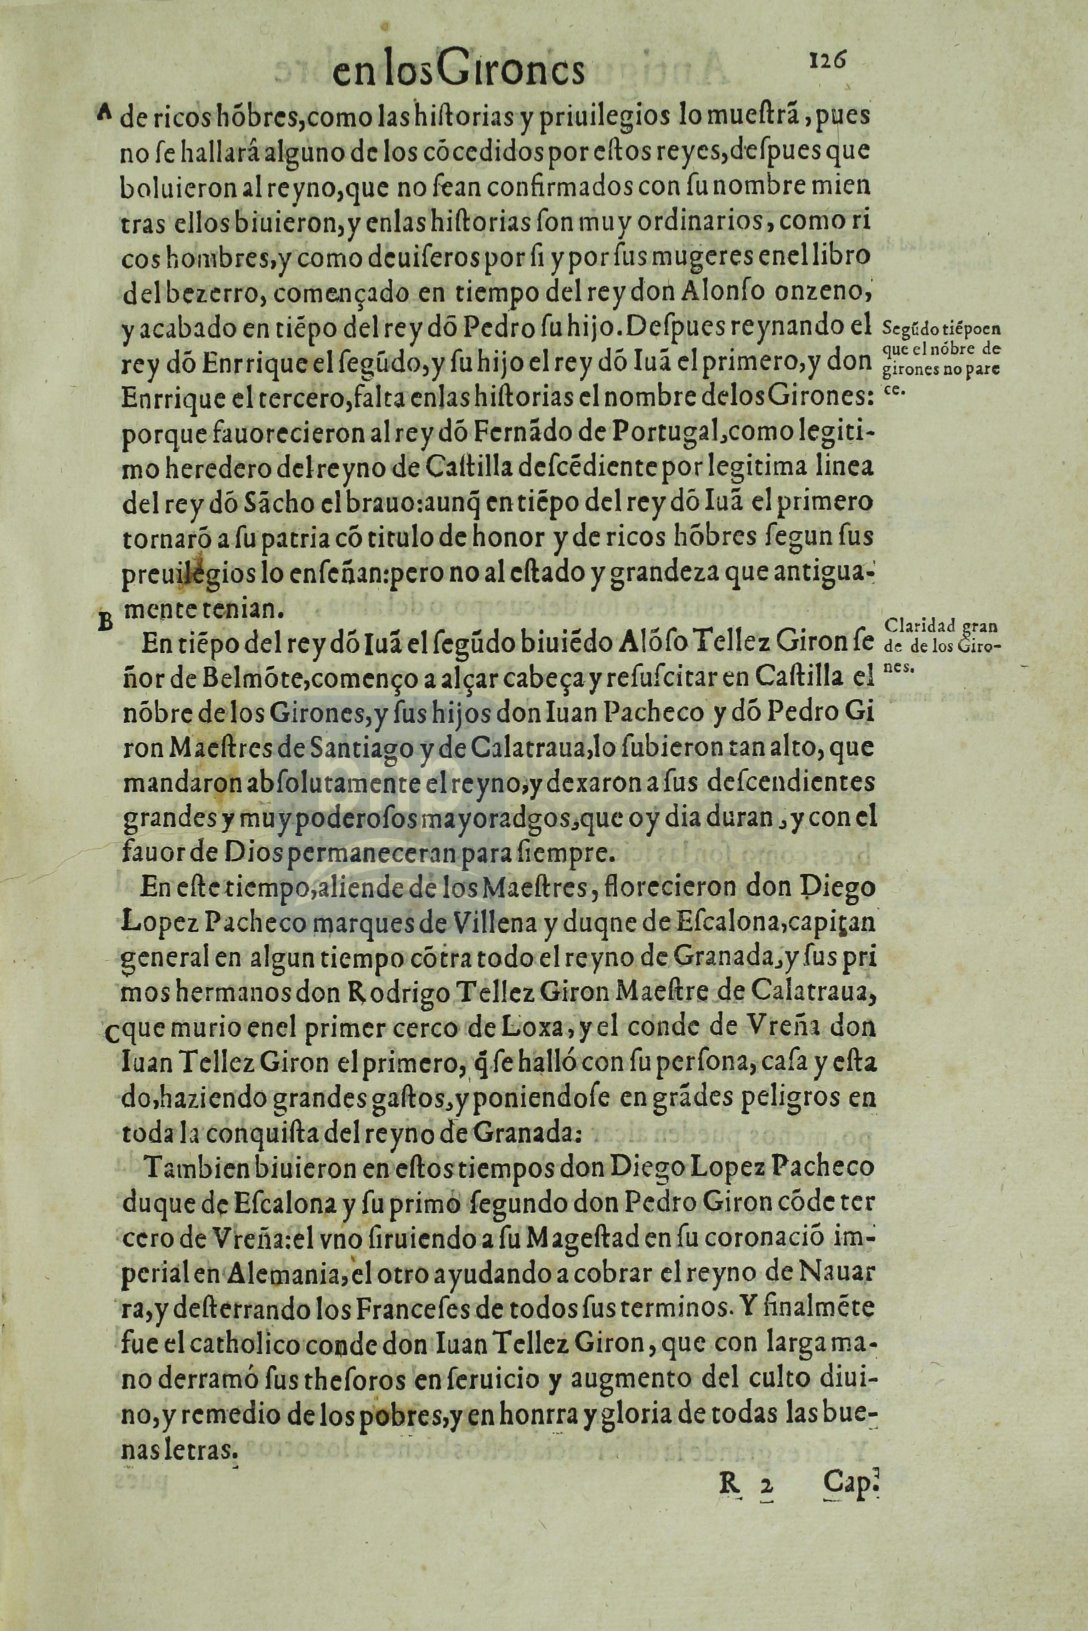 en los Girones
126
A
de ricos hõbres, como las hiſtorias y priuilegios lo mueſtrã, pues
no ſe hallará alguno de los cõcedidos por eſtos reyes, deſpues que
boluieron al reyno, que no ſean confirmados con ſu nombre mien
tras ellos biuieron, y enlas hiſtorias ſon muy ordinarios, como ri
cos hombres, y como deuiſeros por ſi y por ſus mugeres enel libro
del bezerro, començado en tiempo del rey don Alonſo onzeno,
y acabado en tiẽpo del rey dõ Pedro ſu hijo. Deſpues reynando el
rey dõ Enrrique el ſegũdo, y ſu hijo el rey dõ Iuã el primero, y don
Enrrique el tercero, falta enlas hiſtorias el nombre delos Girones:
porque fauorecieron al rey dõ Fernãdo de Portugal, como legiti-
mo heredero del reyno de Caſtilla deſcẽdiente por legitima linea
del rey dõ Sãcho el brauo: aunq̃ en tiẽpo del rey dõ Iuã el primero
tornarõ a ſu patria cõ titulo de honor y de ricos hõbres ſegun ſus
preuilegios lo enſeñan: pero no al eſtado y grandeza que antigua-
mente tenian.
Segũdo tiẽpo en
que el nõbre de
girones no pare
ce.
B
En tiẽpo del rey dõ Iuã el ſegũdo biuiẽdo Alõſo Tellez Giron ſe
ñor de Belmõte, començo a alçar cabeça y reſuſcitar en Caſtilla el
nõbre de los Girones, y ſus hijos don Iuan Pacheco y dõ Pedro Gi
ron Maeſtres de Santiago y de Calatraua, lo ſubieron tan alto, que
mandaron abſolutamente el reyno, y dexaron a ſus deſcendientes
grandes y muy poderoſos mayoradgos, que oy dia duran, y con el
fauor de Dios permaneceran para ſiempre.
Claridad gran
de de los Giro-
nes.
En eſte tiempo, aliende de los Maeſtres, florecieron don Diego
Lopez Pacheco marques de Villena y duqne de Eſcalona, capitan
general en algun tiempo cõtra todo el reyno de Granada, y ſus pri
mos hermanos don Rodrigo Tellez Giron Maeſtre de Calatraua,
C
que murio enel primer cerco de Loxa, y el conde de Vreña don
Iuan Tellez Giron el primero, q̃ ſe halló con ſu perſona, caſa y eſta
do, haziendo grandes gaſtos, y poniendoſe en grãdes peligros en
toda la conquiſta del reyno de Granada:
Tambien biuieron en eſtos tiempos don Diego Lopez Pacheco
duque de Eſcalona y ſu primo ſegundo don Pedro Giron cõde ter
cero de Vreña: el vno ſiruiendo a ſu Mageſtad en ſu coronaciõ im-
perial en Alemania, el otro ayudando a cobrar el reyno de Nauar
ra, y deſterrando los Franceſes de todos ſus terminos. Y finalmẽte
fue el catholico conde don Iuan Tellez Giron, que con larga ma-
no derramó ſus theſoros en ſeruicio y augmento del culto diui-
no, y remedio de los pobres, y en honrra y gloria de todas las bue-
nas letras.
R 2
Cap.